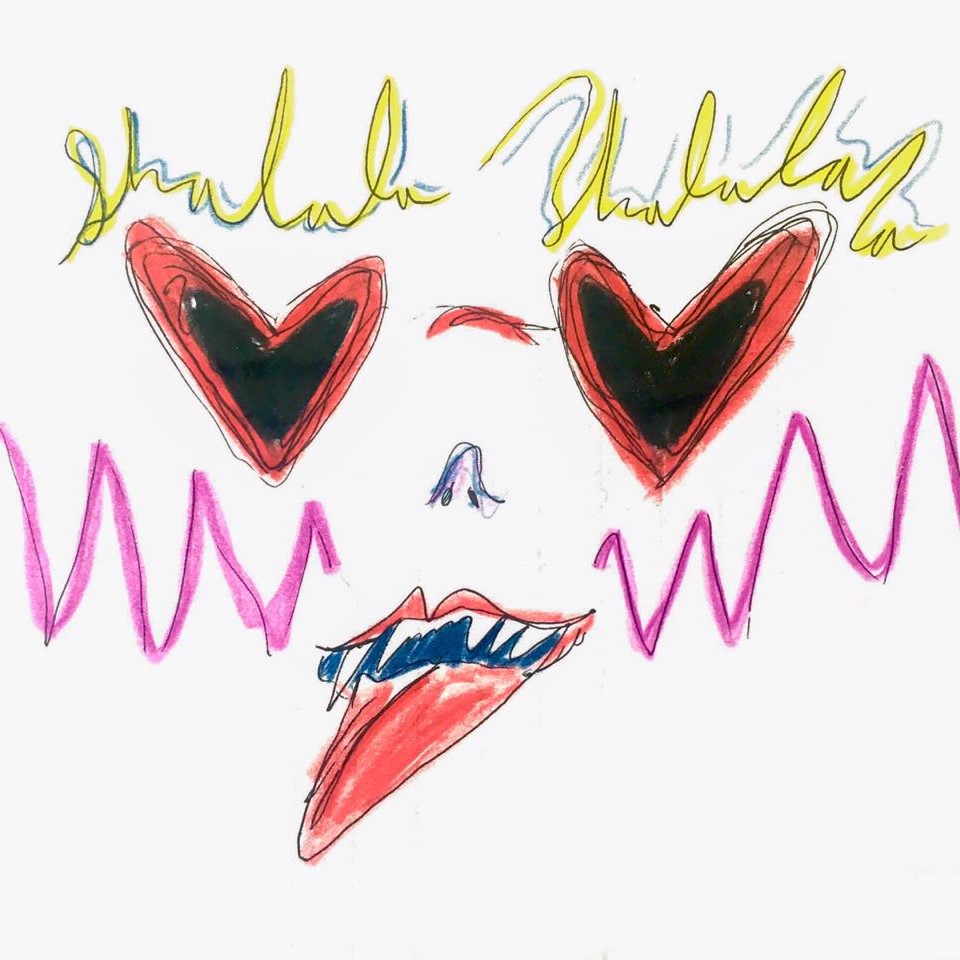 Shalala Shalalala